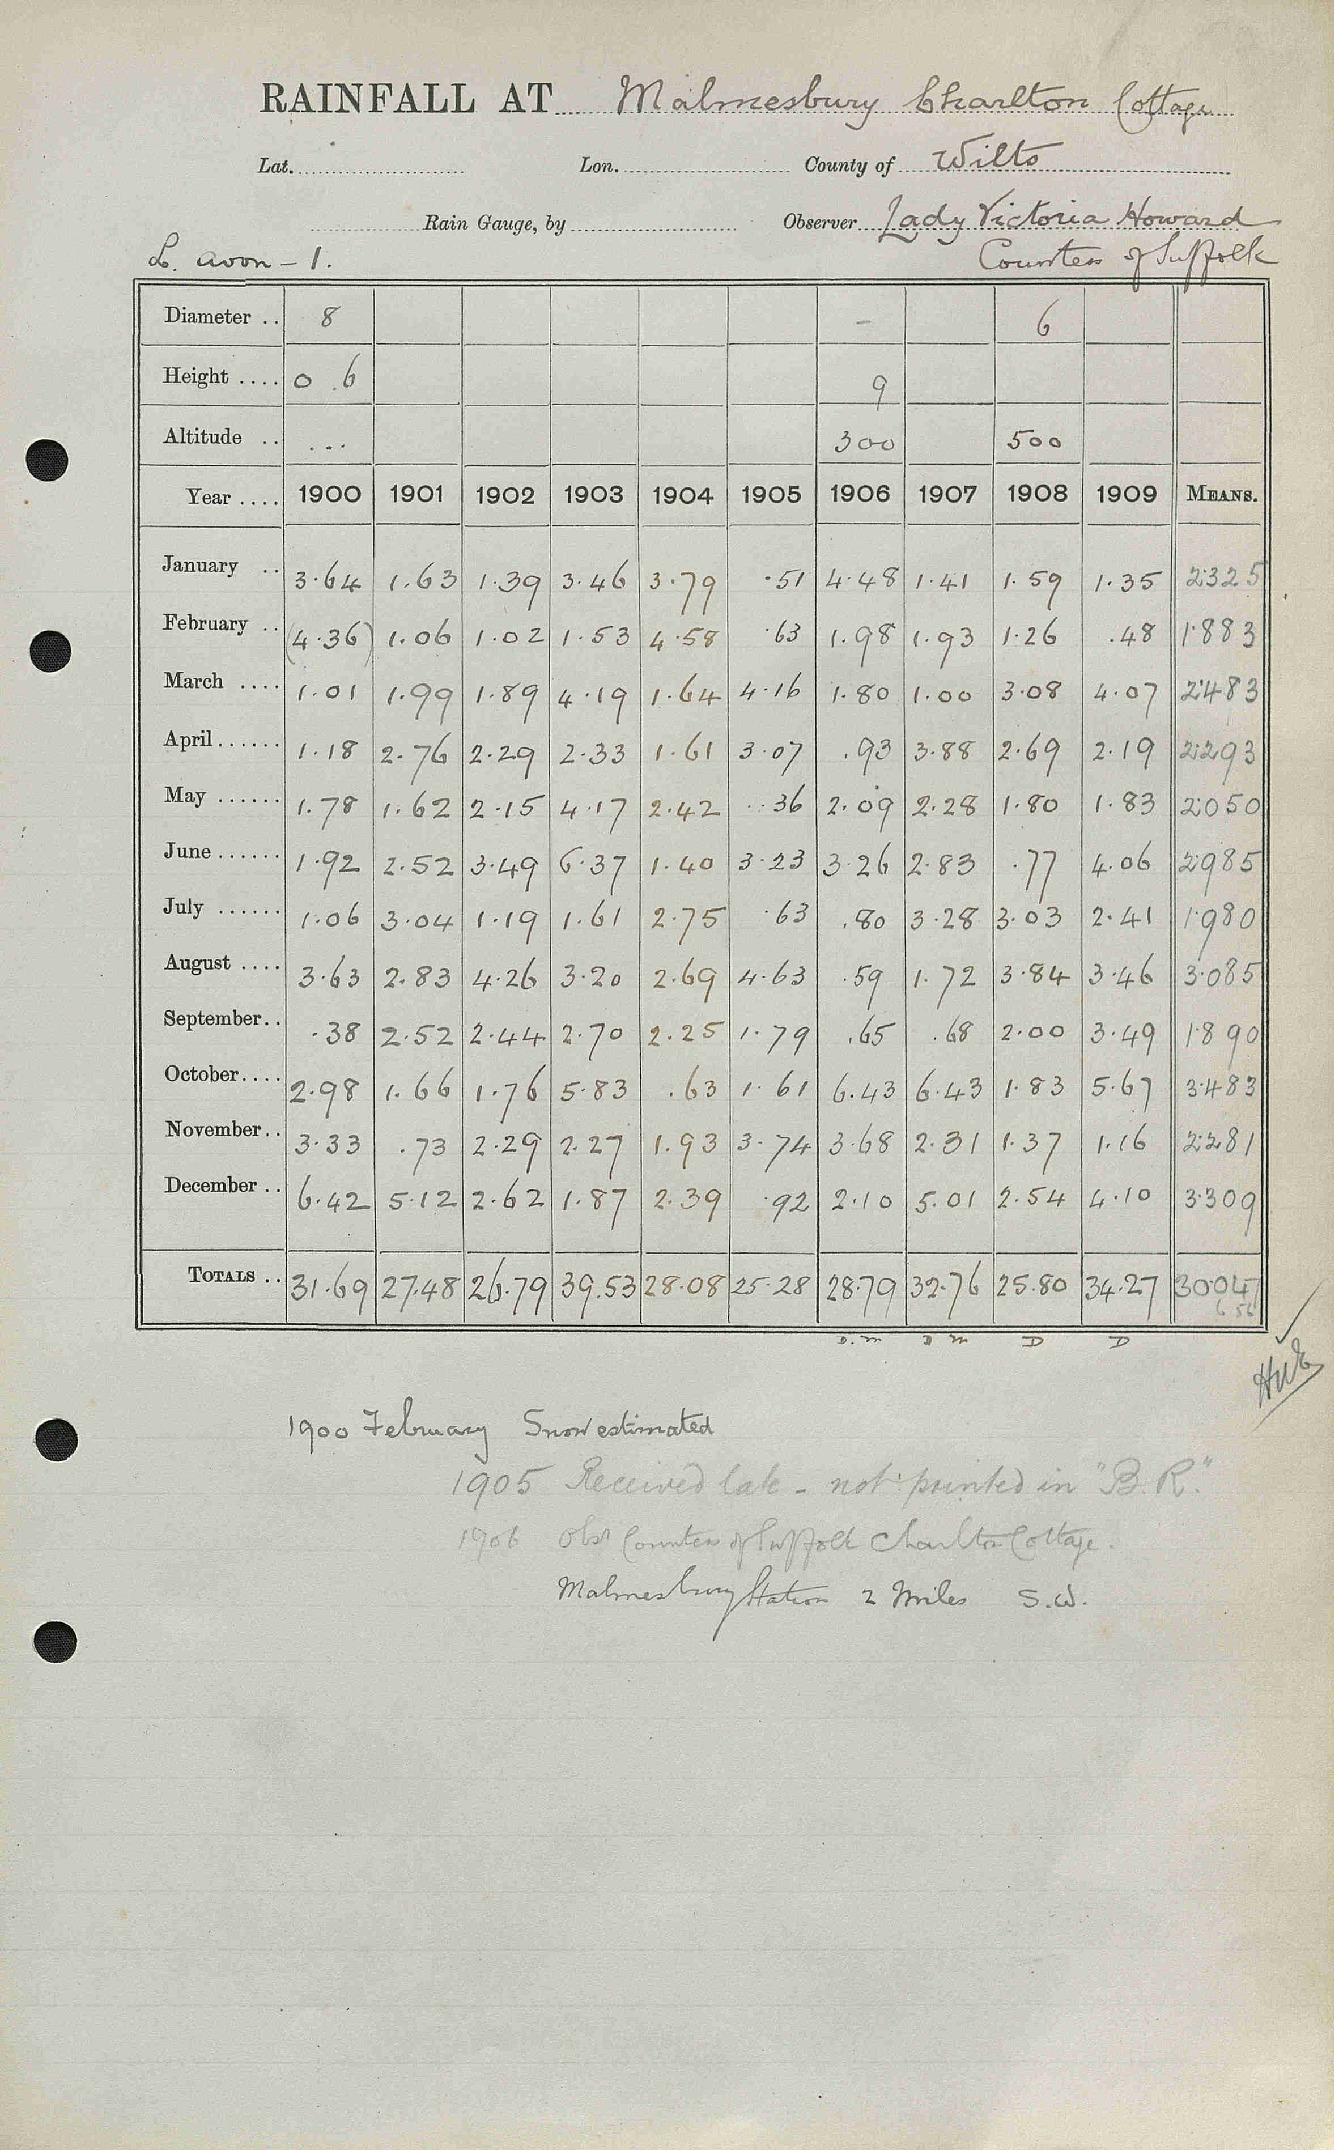 RAINFALL AT Malmesbury Charlton Cottage
Lat. Lon. County of Wilts
Rain Gauge, by Observer Lady Victoria Howard
L. Avon - 1. Countess of Suffolk
Diameter .. 8 - 6
Height .... 0 .6 9
Altitude .. ... 300 500
Year .... 1900 1901 1902 1903 1904 1905 1906 1907 1908 1909 MEANS.
January .. 3.64 1.63 1.39 3.46 3.79 .51 4.48 1.41 1.59 1.35 2.325
February .. (4.36) 1.06 1.02 1.53 4.58 .63 1.98 1.93 1.26 .48 1.883
March .... 1.01 1.99 1.89 4.19 1.64 4.16 1.80 1.00 3.08 4.07 2.483
April ...... 1.18 2.76 2.29 2.33 1.61 3.07 .93 3.88 2.69 2.19 2.293
May ...... 1.78 1.62 2.15 4.17 2.42 .36 2.09 2.28 1.80 1.83 2.050
June ...... 1.92 2.52 3.49 6.37 1.40 3.23 3.26 2.83 .77 4.06 2.985
July ...... 1.06 3.04 1.19 1.61 2.75 .63 .80 3.28 3.03 2.41 1.980
August .... 3.63 2.83 4.26 3.20 2.69 4.63 .59 1.72 3.84 3.46 3.085
September.. .38 2.52 2.44 2.70 2.25 1.79 .65 .68 2.00 3.49 1.890
October.... 2.98 1.66 1.76 5.83 .63 1.61 6.43 6.43 1.83 5.67 3.483
November.. 3.33 .73 2.29 2.27 1.93 3.74 3.68 2.31 1.37 1.16 2.281
December .. 6.42 5.12 2.62 1.87 2.39 .92 2.10 5.01 2.54 4.10 3.309
TOTALS .. 31.69 27.48 26.79 39.53 28.08 25.28 28.79 32.76 25.80 34.27 30.047
D. M D M D D
1900 February Snow estimated
1905 Received late - not printed in "B.R."
1906 Obsr Countess of Suffolk Charlton Cottage.
Malmesbury Station 2 Miles S.W.